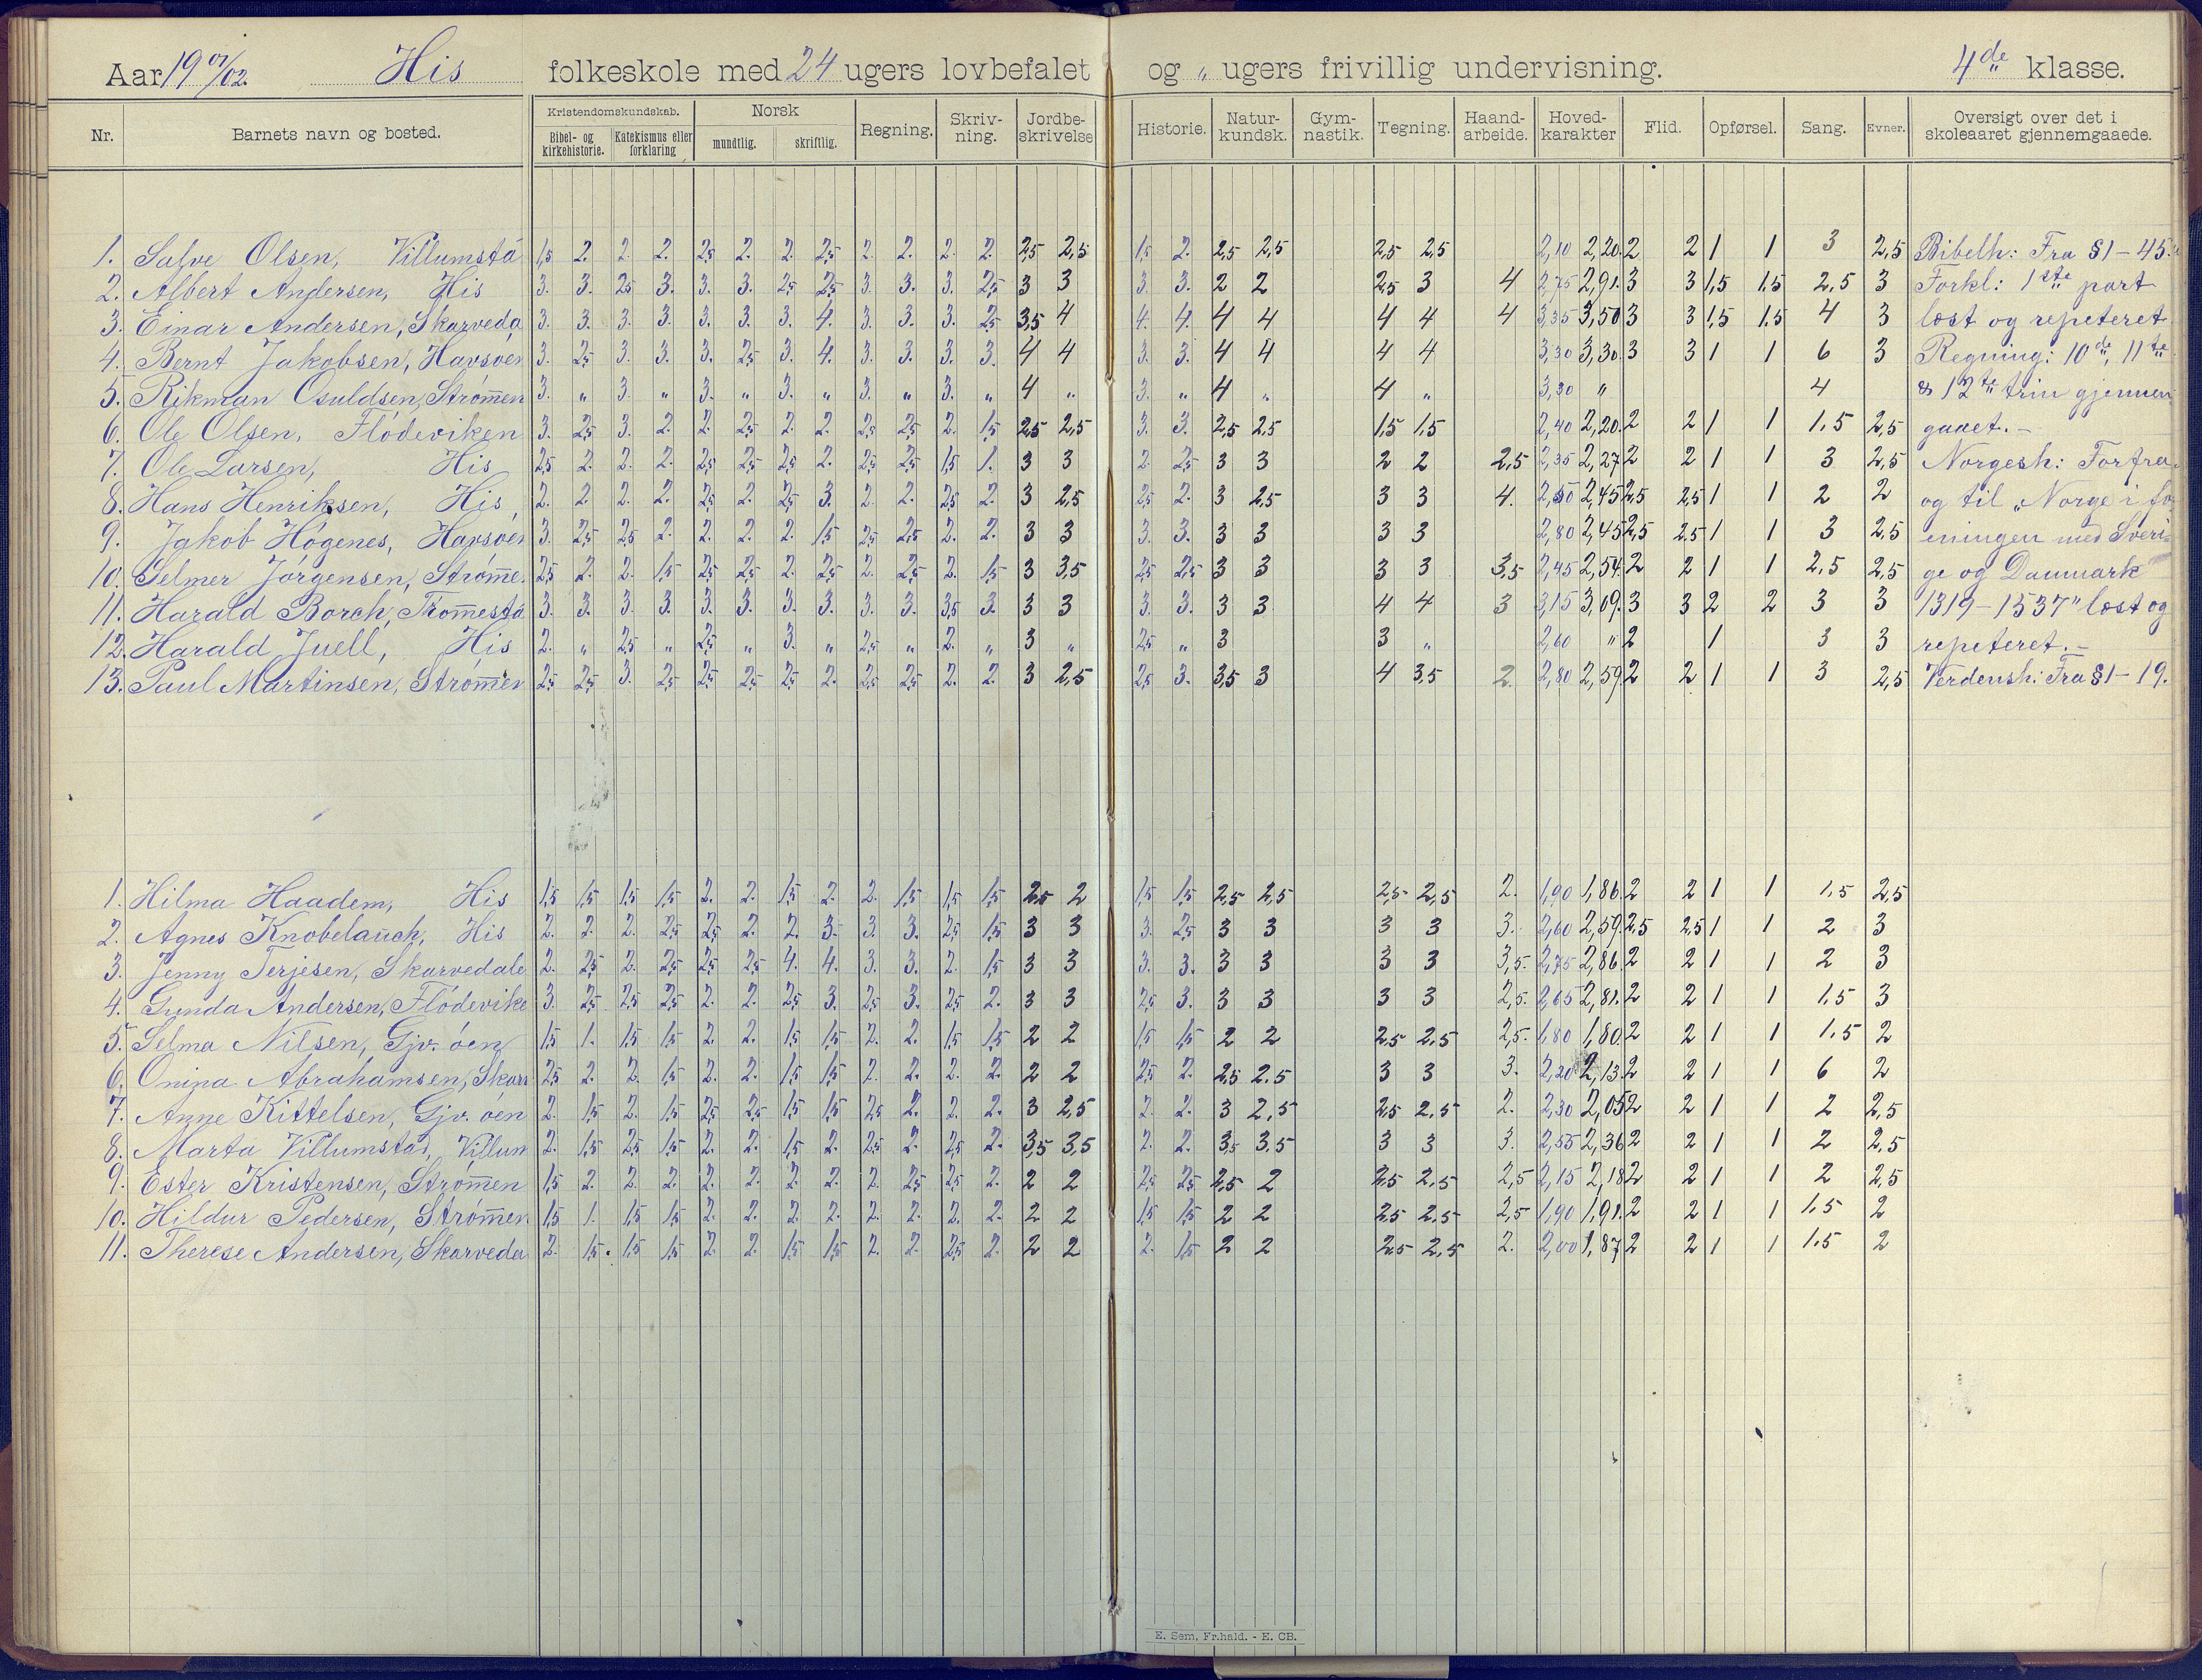 Aar 1901/02. His folkeskole med 24 ugers lovbefalet og „ ugers frivillig undervisning. 4de klasse.
Nr. Barnets navn og bosted. Kristendomskundskab. Bibel- og kirkehistorie. Katekismus eller forklaring Norsk mundtlig. skriftlig. Regning. Skriv-ning. Jordbe-skrivelse Historie. Natur-kundsk. Gym-nastik. Tegning. Haand-arbeide. Hoved-karakter Flid. Opførsel. Sang. Evner. Oversigt over det i skoleaaret gjennemgaaede.
1. Salve Olsen, Villumsta 1,5 2. 2. 2. 2,5 2. 2. 2,5 2. 2. 2. 2. 2,5 2,5 1,5 2. 2,5 2,5 2,5 2,5 2,10 2,20. 2 2 1 1 3 2,5 Bibelh: Fra §1-45.
2. Albert Andersen, His 3. 3. 2,5 3. 3. 3. 2,5 2,5 3. 3. 3. 2,5 3 3 3. 3. 2 2 2,5 3 4 2,75 2,91. 3 3 1,5 1,5 2,5 3 Forkl: 1ste part
3. Einar Andersen, Skarveda 3. 3. 3. 3. 3. 3. 3. 4. 3. 3. 3. 2,5 3,5 4 4. 4. 4 4 4 4 4 3,35 3,50 3 3 1,5 1,5 4 3 læst og repeteret
4. Bernt Jakobsen, Havsøen 3. 2,5 3. 3. 3. 2,5 3. 4. 3. 3. 3. 3. 4 4 3. 3. 4 4 4 4 3,30 3,30. 3 3 1 1 6 3 Regning: 10de, 11te
5. Rikman Osuldsen, Strømen 3. „ 3. „ 3. „ 3. „ 3. „ 3. „ 4 „ 3. „ 4 „ 4 „ 3,30 „ 4 & 12te trin gjennem
6. Ole Olsen, Flödeviken 3. 2,5 3. 2. 2. 2,5 2. 2. 2,5 2,5 2. 1,5 2,5 2,5 3. 3. 2,5 2,5 1,5 1,5 2,40 2,20. 2 2 1 1 1,5 2,5 gaaet.-
7. Ole Larsen, His 2,5 2. 2. 2. 2,5 2,5 2,5 2. 2,5 2,5 1,5 1. 3 3 2. 2,5 3 3 2 2 2,5 2,35 2,27 2 2 1 1 3 2,5 Norgesh: Forfra
8. Hans Henriksen, His, 2. 2 2. 2. 2,5 2. 2,5 3. 2. 2. 2,5 2. 3 2,5 2,5 2. 3 2,5 3 3 4. 2,50 2,45 2,5 2,5 1 1 2 2 og til „Norge i fo
9. Jakob Högenes, Havsøen 3. 2,5 2,5 2. 2. 2. 2. 1,5 2,5 2,5 2. 2. 3 3 3. 3. 3 3 3 3 2,80 2,45 2,5 2,5 1 1 3 2,5 eningen med Sveri-
10. Selmer Jörgensen, Strøme. 2,5 2. 2. 1,5 2,5 2,5 2. 2,5 2. 2,5 2. 1,5 3 3,5 2,5 2,5 3 3 3 3 3,5 2,45 2,54. 2 2 1 1 2,5 2,5 ge og Danmark
11. Harald Borch, Tromestø 3. 3. 3. 3. 3. 3. 3. 3. 3. 3. 3,5 3. 3 3 3. 3. 3 3 4 4 3 3,15 3,09. 3 3 2 2 3 3 1319-1537" læst og
12. Harald Juell, His 2. „ 2,5 „ 2,5 „ 3. „ 2,5 „ 2. „ 3 „ 2,5 „ 3 3 „ 2,60 „ 2 1 3 3 repeteret.-
13. Paul Martinsen, Strømen 2,5 2,5 3. 2,5 2,5 2,5 2,5 2. 2,5 2,5 2. 2. 3 2,5 2,5 3. 3,5 3 4 3,5 2. 2,80 2,59. 2 2 1 1 3 2,5 Verdensh: Fra §1-19.
1. Hilma Haadem, His 1,5 1,5 1,5 1,5 2. 2. 1,5 2. 2. 1,5 1,5 1,5 2,5 2 1,5 1,5 2,5 2,5 2,5 2,5 2. 1,90 1,86. 2 2 1 1 1,5 2,5
2. Agnes Knobelauch, His 2. 2. 2. 2,5 2,5 2. 2. 3. 3. 3. 2,5 1,5 3 3 3. 2,5 3 3 3 3 3. 2,60 2,59. 2,5 2,5 1 1 2 3
3. Jenny Terjesen, Skarvedale 2. 2,5 2. 2,5 2,5 2,5 4. 4. 3. 3. 2. 1,5 3 3 3. 3. 3 3 3 3 3,5. 2,75 2,86. 2 2 1 1 2 3
4. Gunda Andersen, Flödevike 3. 2,5 2,5 2,5 2. 2. 2,5 3. 2,5 3. 2,5 2. 3 3 2,5 3. 3 3 3 3 2,5. 2,65 2,81. 2 2 1 1 1,5 3
5. Selma Nilsen, Gjv. öen 1,5 1. 1,5 1,5 2. 2. 1,5 1,5 2. 2. 1,5 1,5 2 2 1,5 1,5 2 2 2,5 2,5 2,5. 1,80 1,80. 2 2 1 1 1,5 2
6. Onina Abrahamsen, Skarv 2,5 2. 2. 1,5 2. 2. 1,5 1,5 2. 2. 2. 2. 2 2 2,5 2. 2,5 2,5 3 3 3. 2,20 2,13. 2 2 1 1 6 2
7. Anne Kittelsen, Gjv. öen 2. 1,5 2. 1,5 2,5 2,5 1,5 1,5 2,5 2. 2. 2. 3 2,5 2. 2. 3 2,5 2,5 2,5 2. 2,30 2,05 2 2 1 1 2 2,5
8. Marta Villumstad, Villum 2. 1,5 2,5 1,5 2. 2. 1,5 2. 2,5 2. 2,5 2. 3,5 3,5 2. 2. 3,5 3,5 3 3 3. 2,55 2,36 2 2 1 1 2 2,5
9. Ester Kristensen, Strømen 1,5 2. 2. 2. 2. 2. 2. 2. 2. 2,5 2,5 2. 2 2 2,5 2,5 2,5 2 2,5 2,5 2,5 2,15 2,18 2 2 1 1 2 2,5
10. Hildur Pedersen, Strømen 1,5 1. 1,5 1,5 2. 2. 2. 2. 2. 2. 2. 2. 2 2 1,5 1,5 2 2 2,5 2,5 2,5 1,90 1,91. 2 2 1 1 1,5 2
11. Therese Andersen, Skarveda 2. 1,5. 1,5 1,5 2. 2. 1,5 1,5 2. 2. 2,5 2. 2 2 2. 1,5 2 2 2,5 2,5 2. 2,00 1,87 2 2 1 1 1,5 2
E. Sem, Fr.hald. - E. CB.